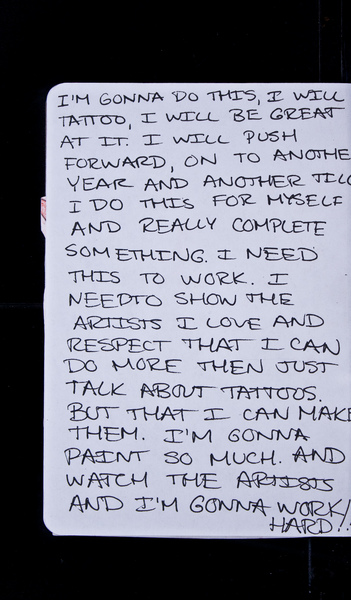 I'M GONNA DO THIS, I WILL
TATTOO, I WILL BE GREAT
AT IT. I WILL PUSH
FORWARD, ON TO ANOTHE
YEAR AND ANOTHER TILL
I DO THIS FOR MYSELF
AND REALLY COMPLETE
SOMETHING. I NEED
THIS TO WORK. I
NEEDTO SHOW THE
ARTISTS I LOVE AND
RESPECT THAT I CAN
DO MORE THEN JUST
TALK ABOUT TATTOOS.
BUT THAT I CAN MAKE
THEM. I'M GONNA
PAINT SO MUCH. AND
WATCH THE ARTISTS
AND I'M GONNA WORK
HARD!!